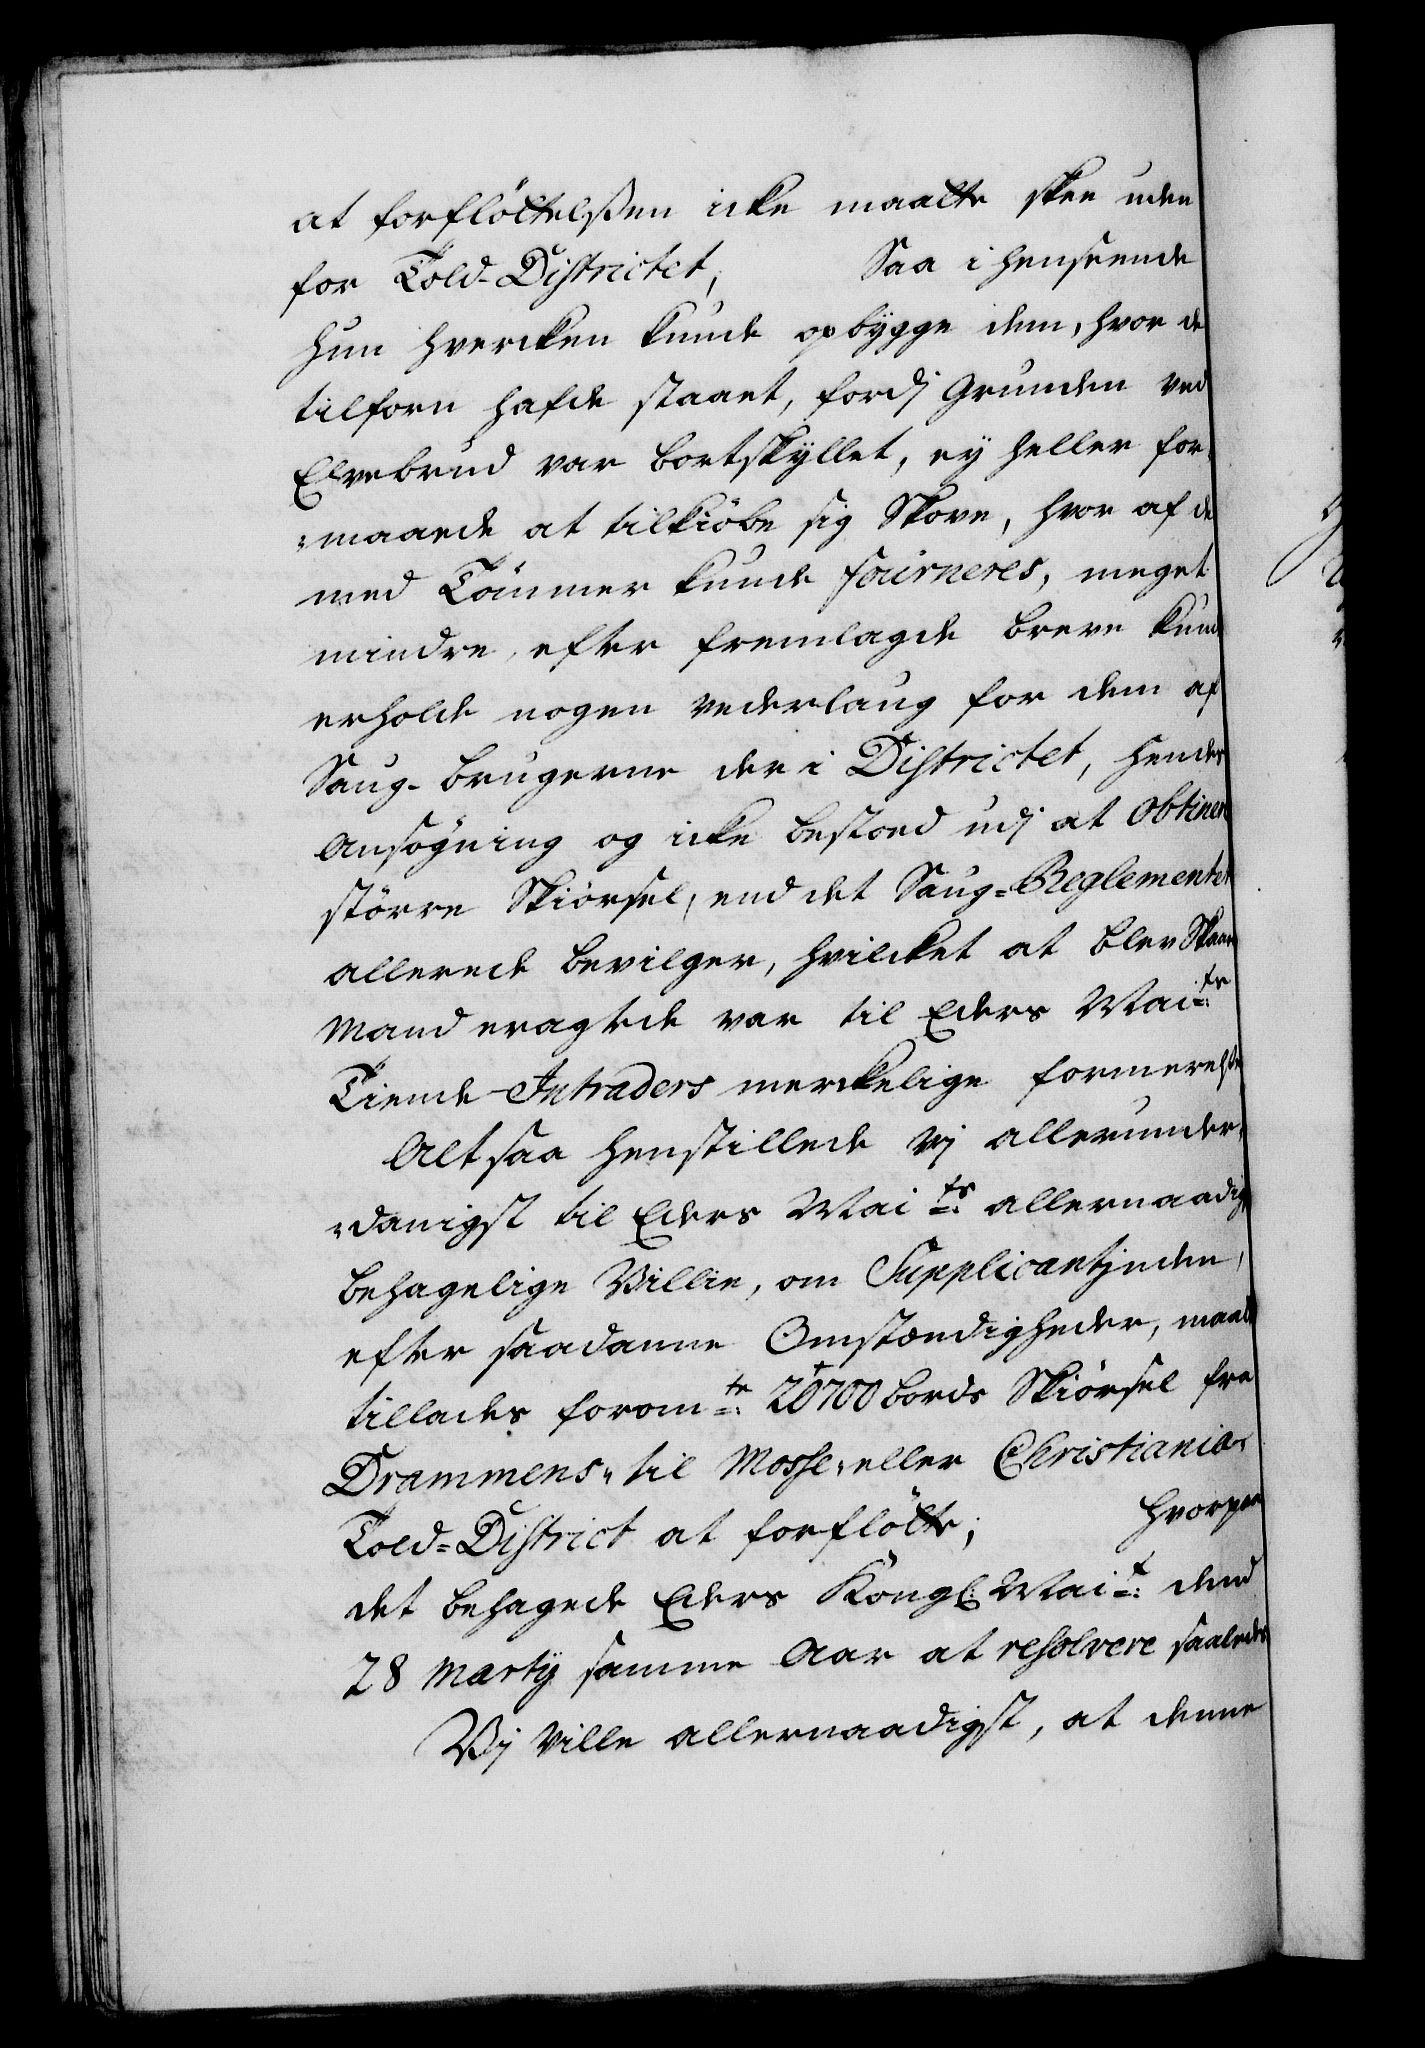 at forflöttelßen icke maatte skee uden
for Told-Districtet, Saa i henseende
hun hvercken kunde opbygge dem, hvor de
tilforn hafde staaet, fordj Grunden ved
Elvebrud var bortskyllet, ey heller for-
-maaede at tilkiöbe sig Skove, hvor af de
med Tömmer kunde fourneres, meget
mindre efter fremlagde breve kunde
erholde nogen vederlaug for dem af
Saug-brugerne der i Districtet, hendes
Ansögning og icke bestoed udj at obtinere
större Skiörsel, end det Saug-Reglementet
allerede bevilger, hvilcket at blev Skaaren
mand eragtede var til Eders Mai:ts
Tiende-Intraders merckelige formerelse
Alt saa henstillede vj allerunder-
-danigst til Eders Mai:ts allernaadigst
behagelige Villie, om Supplicantjnden,
efter saadanne Omstændigheder, maatte
tillades forom:te 20700 bords Skiörsel fra
Drammens- til Mosse- eller Christiania-
Told-District at forflötte; hvorpaa
det behagede Eders Kongl: Mai:t dend
28 Martÿ samme Aar at resolvere saaledes
Vj Ville allernaadigst, at denne